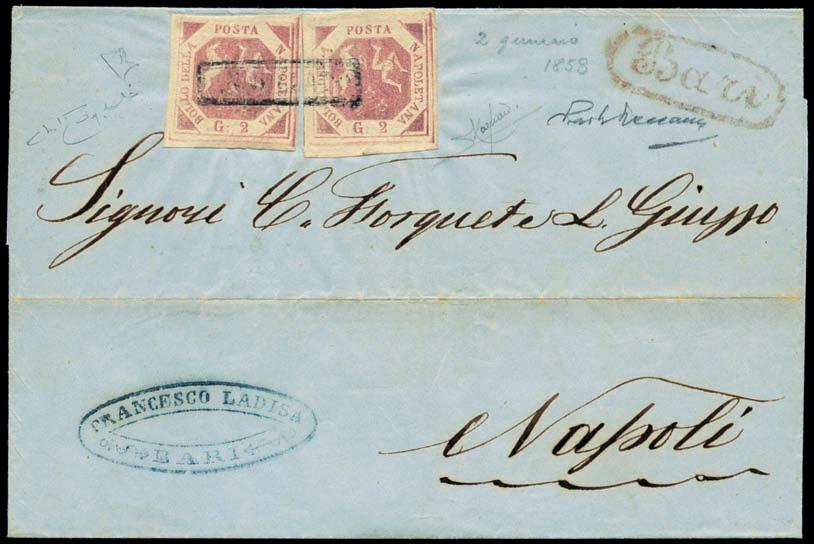 BOLLO DELLA POSTA NAPOLETANA
G. 2
BOLLO DELLA POSTA NAPOLETANA
G. 2
2 gennaio
1858
Bari
Signori C. Forquet e L. Giusso
Napoli
FRANCESCO LADISA
BARI